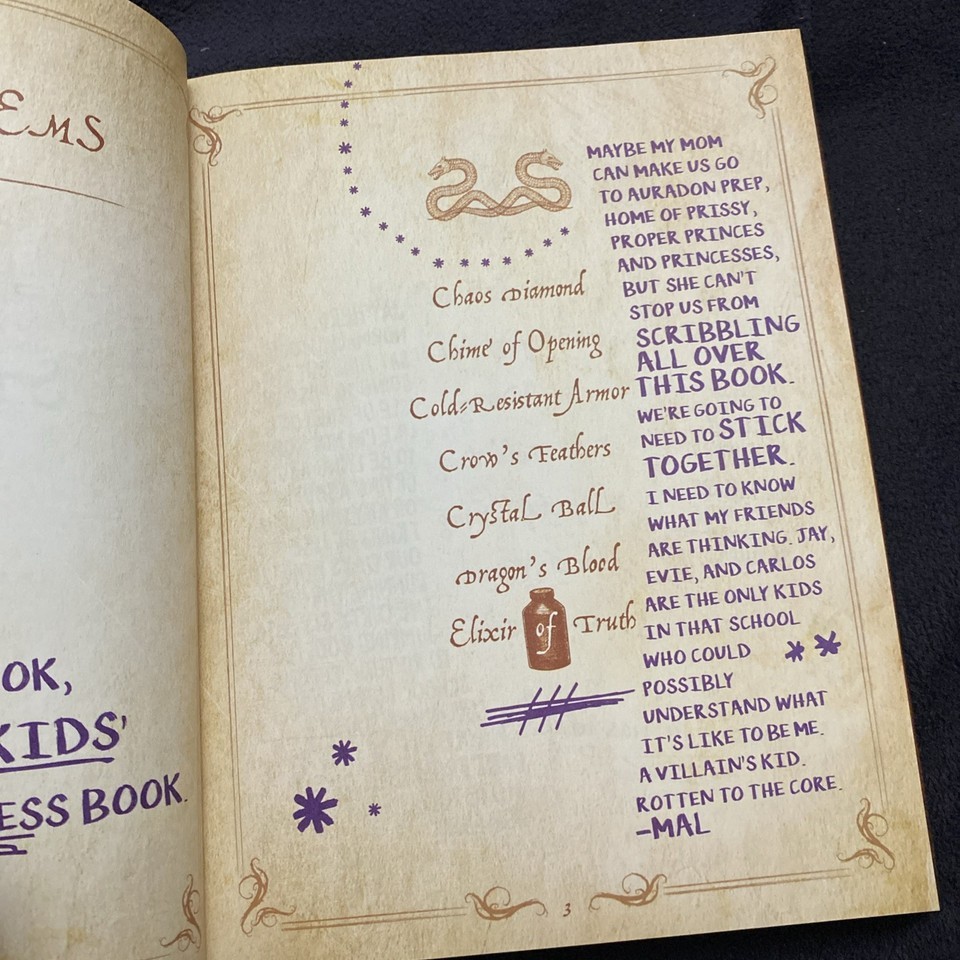 EMS
OK,
KIDS'
ESS BOOK.
Chaos Diamond
Chime of Opening
Cold-Resistant Armor
Crow's Feathers
Crystal Ball
Dragon's Blood
Elixir of Truth
MAYBE MY MOM
CAN MAKE US GO
TO AURADON PREP,
HOME OF PRISSY,
PROPER PRINCES
AND PRINCESSES,
BUT SHE CAN'T
STOP US FROM
SCRIBBLING
ALL OVER
THIS BOOK.
WE'RE GOING TO
NEED TO STICK
TOGETHER.
I NEED TO KNOW
WHAT MY FRIENDS
ARE THINKING. JAY,
EVIE, AND CARLOS
ARE THE ONLY KIDS
IN THAT SCHOOL
WHO COULD
POSSIBLY
UNDERSTAND WHAT
IT'S LIKE TO BE ME.
A VILLAIN'S KID.
ROTTEN TO THE CORE.
-MAL
3